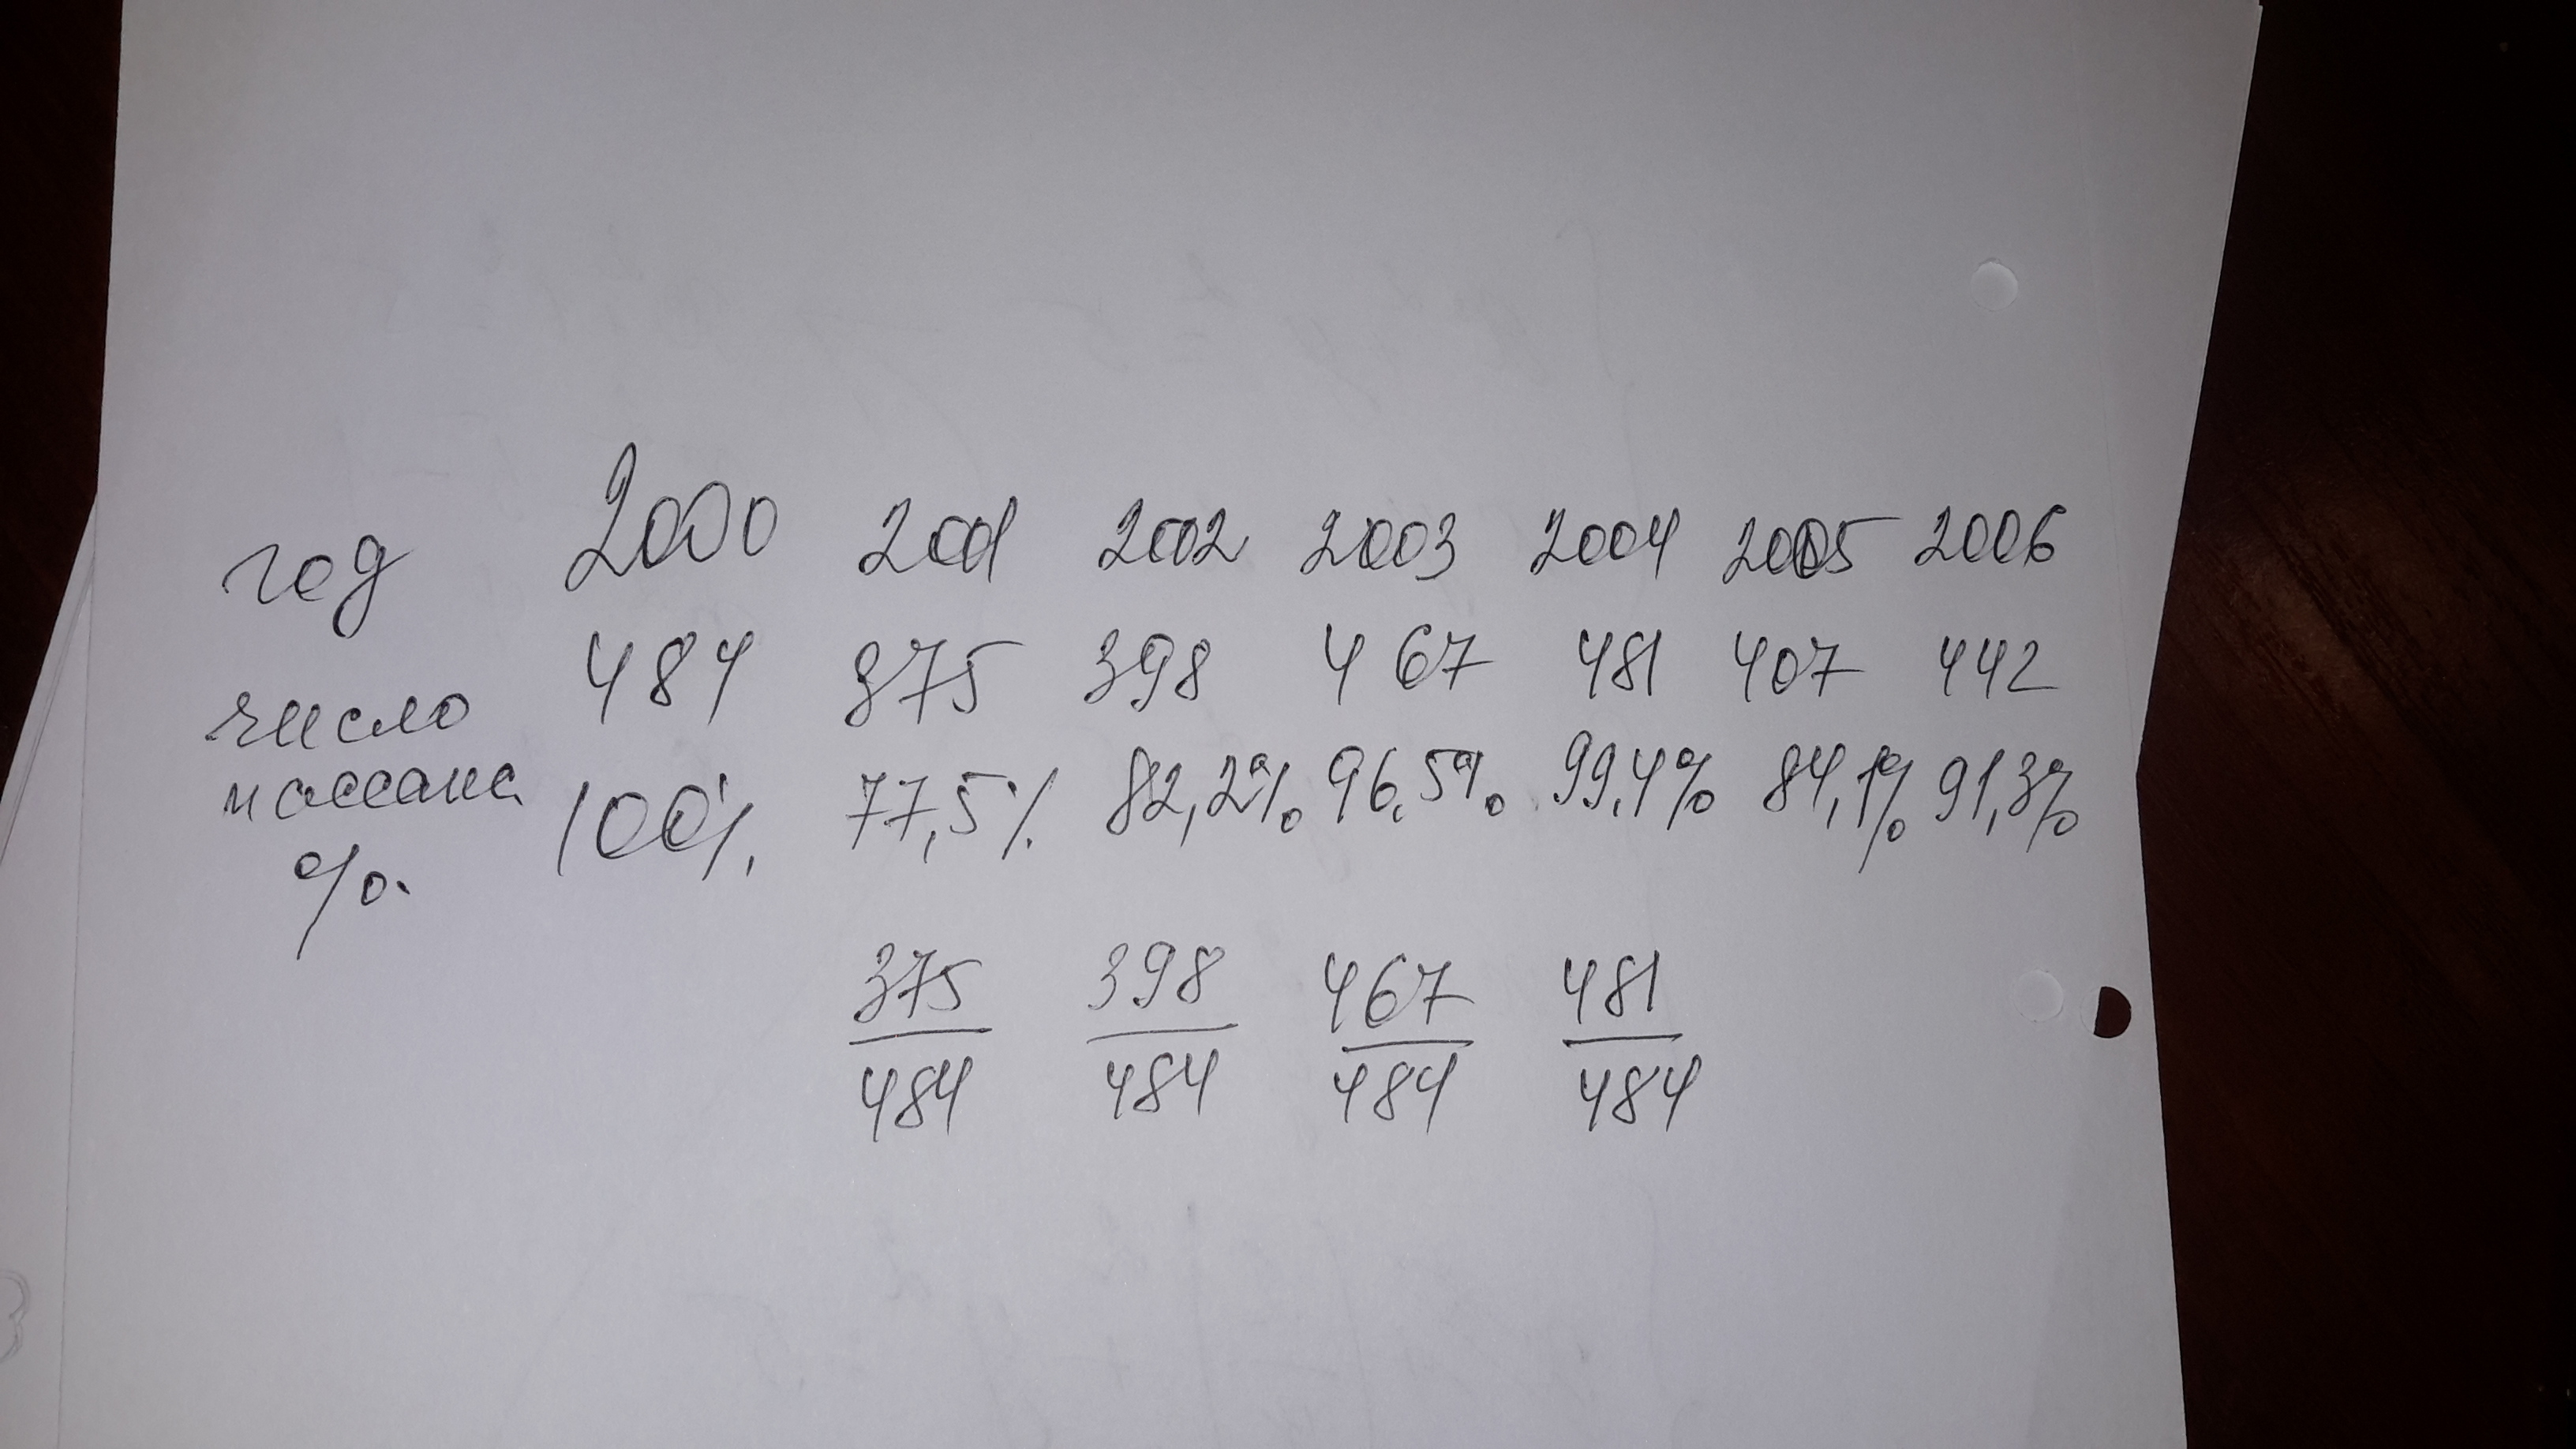 год 2000 2001 2002 2003 2004 2005 2006
число 484 375 398 467 481 407 442
% 100% 77,5% 82,2% 96,5% 99,4% 84,1% 91,3%
375 398 467 481
484 484 484 484